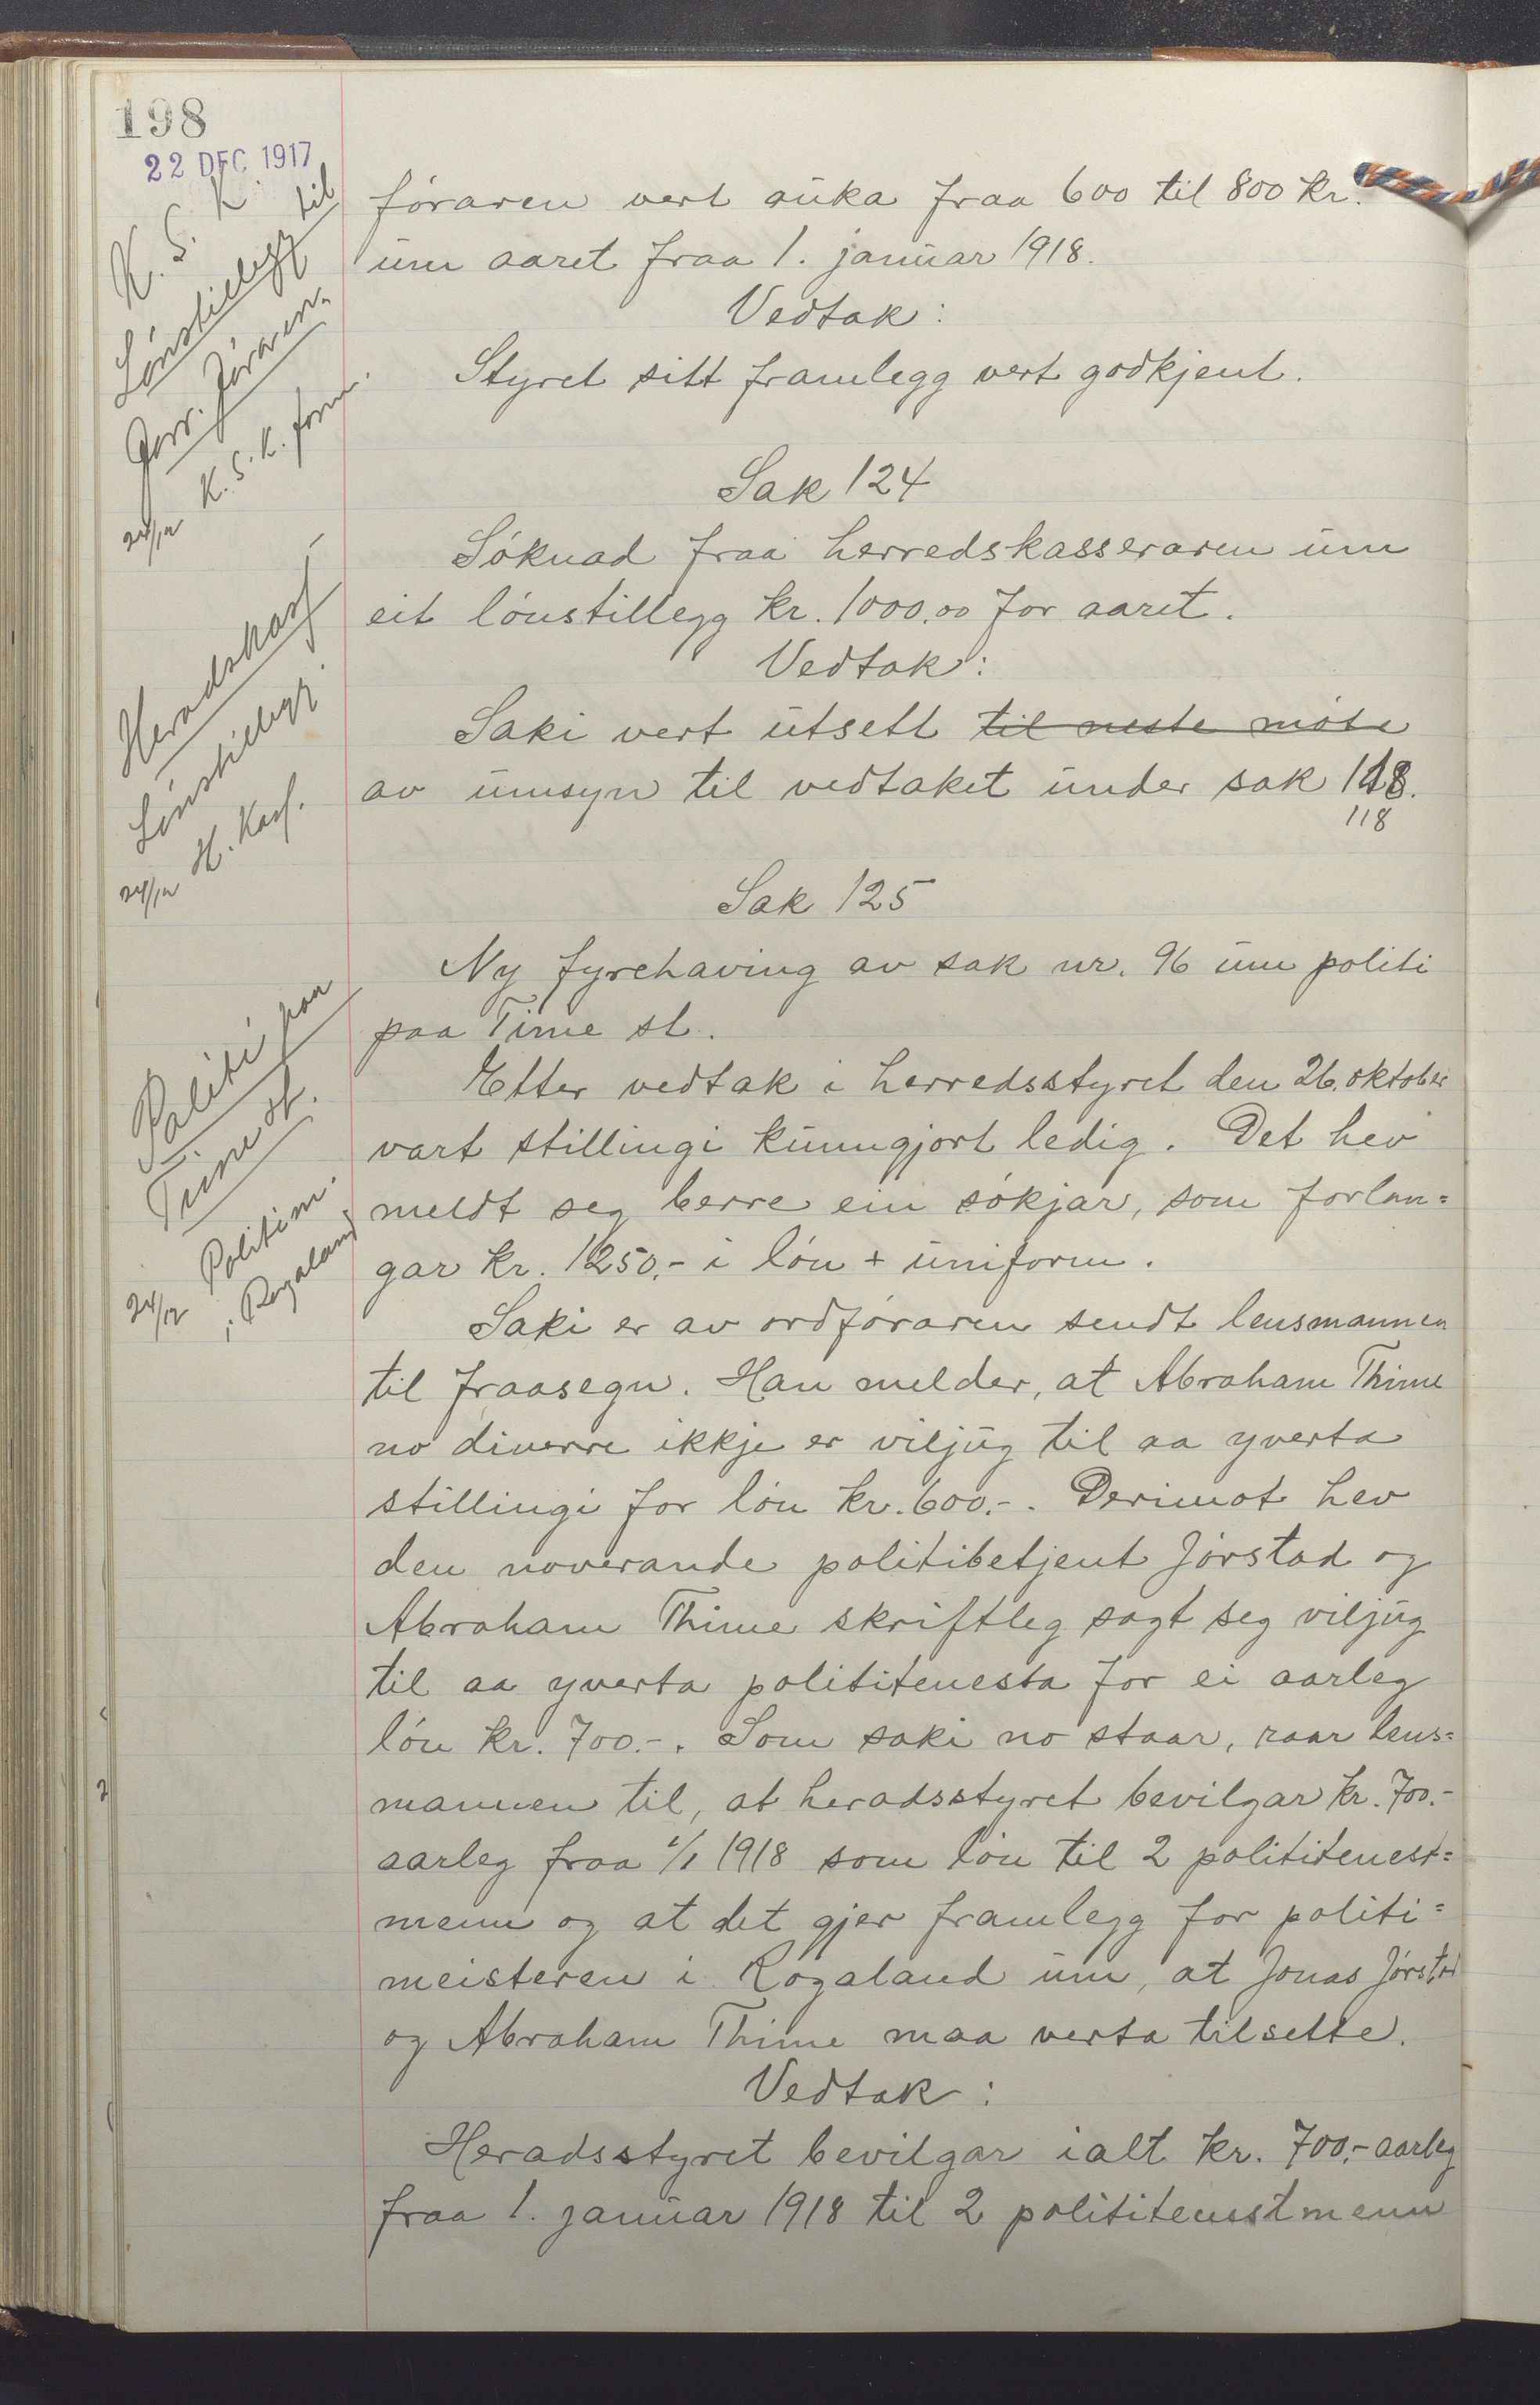 198
22 DEC 1917
K. S. K. til
Lónstillegg
forr. fóraren.
K. S. K. form.
24/12
fóraren vert auka fraa 600 til 800 kr.
um aaret fraa 1. januar 1918.
Vedtak:
Styret sitt framlegg vert godkjent.
Sak 124
Sóknad fraa herredskasseraren um
eit lónstillegg kr. 1000.00 for aaret.
Vedtak:
Saki vert utsett til neste móte
av umsyn til vedtaket under sak 118.
118
Heradskass.
Lónstillegg.
H. Kass.
24/12
Sak 125
Ny fyrehaving av sak nr. 96 um politi
paa Time st.
Politi paa
Time st.
Politim.
i Rogaland
24/12
Etter vedtak i herredsstyret den 26. oktober
vart stillingi kunngjort ledig. Det hev
meldt seg berre ein sókjar, som forlan=
gar kr. 1250.- i lón + uniform.
Saki er av ordfóraren sendt lensmannen
til fraasegn. Han melder, at Abraham Thime
no diverre ikkje er viljug til aa yverta
stillingi for lón kr. 600.-. Derimot hev
den noverande politibetjent Jórstad og
Abraham Thime skriftleg sagt seg viljug
til aa yverta polititenesta for ei aarleg
lón kr. 700.-. Som saki no staar, raar lens=
mannen til, at heradsstyret bevilgar kr. 700.-
aarleg fraa 1/1 1918 som lón til 2 polititenest=
menn og at det gjer framlegg for politi=
meisteren i Rogaland um, at Jonas Jórstad
og Abraham Thime maa verta tilsette.
Vedtak:
Heradsstyret bevilgar ialt kr. 700,- aarleg
fraa 1. januar 1918 til 2 polititenestmenn